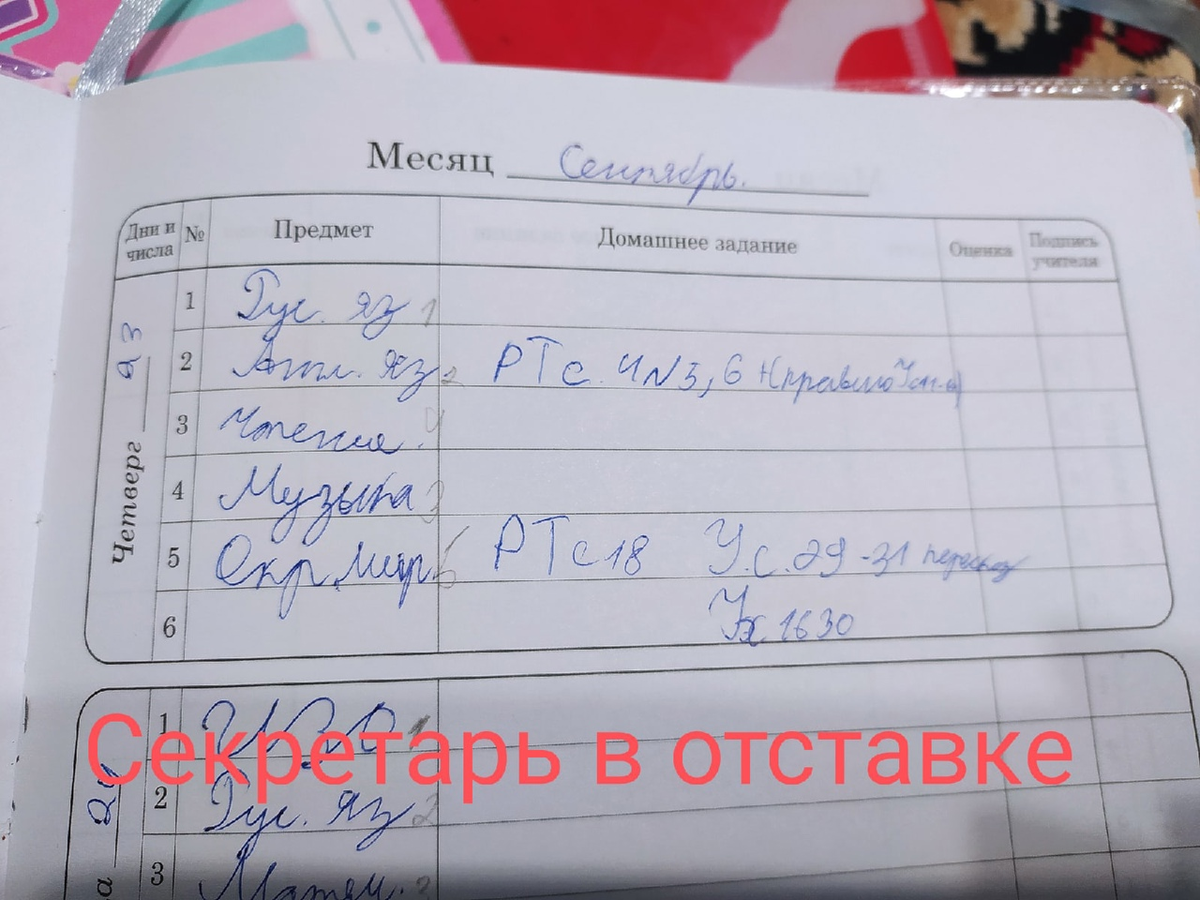 Месяц Сентябрь.
Дни и числа № Предмет Домашнее задание Оценка Подпись учителя
Четверг 23
1 Рус. яз 1
2 Англ. яз 2 РТ с. 4 N3, 6 + (правило
3 Чтение. 4
4 Музыка 3
5 Окр. мир. 5 РТ с 18 У. с. 29-31 пересказ
6 1630
1 ИЗО 1
Секретарь в отставке
24
2 Рус. яз 2
3 Матем. 3